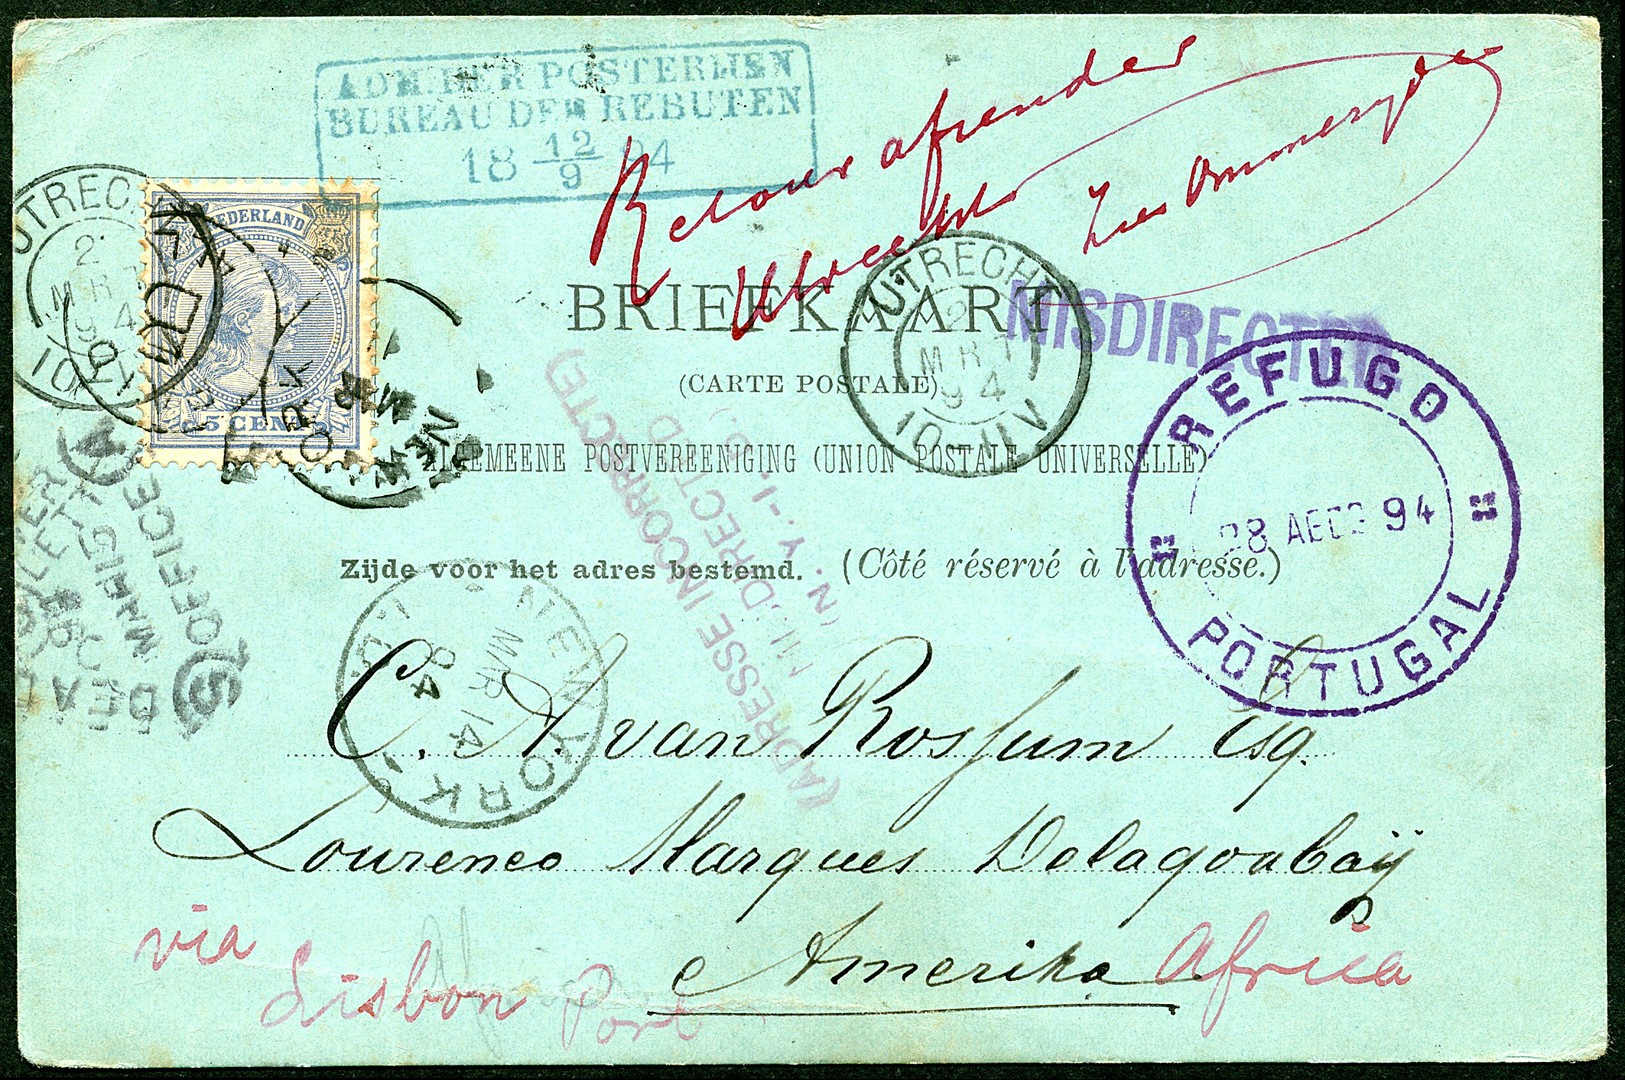 ADM. DER POSTERIJEN
BUREAU DER REBUTEN
18 12/9 94
Retour afzender
Utrecht
UTRECHT
2
MRT
94
10
NEDERLAND
5 CENT
UTRECHT
2
MRT
94
10-11V
BRIEFKAART
MISDIRECTED
(CARTE POSTALE)
ALGEMEENE POSTVEREENIGING (UNION POSTALE UNIVERSELLE)
REFUGO
28 AGO 94
PORTUGAL
Zijde voor het adres bestemd. (Côté réservé à l'adresse.)
(ADRESSE INCORRECTE)
MISDIRECTED
(N.Y.-P.O.)
DEAD LETTER
MAR 15
94
OFFICE
NEW YORK
MAR 14
94
C. A. van Rossum Esq.
Lourenco Marques Delagoabaÿ
Amerika Africa
via
Lisbon Port